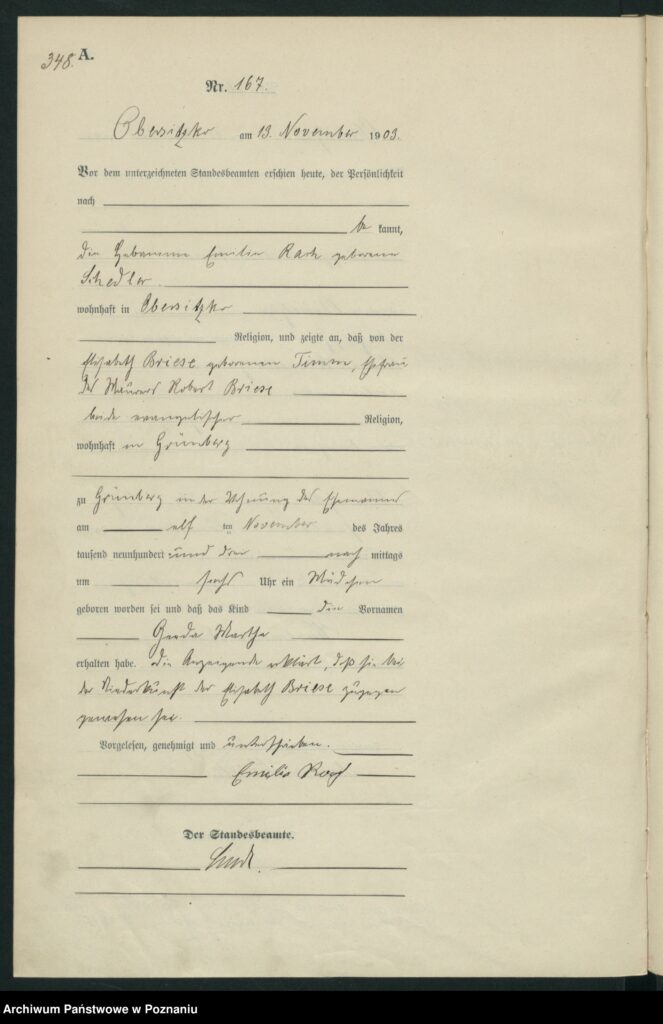 348. A.
Nr. 167.
Obersitzko am 13. November 1903.
Vor dem unterzeichneten Standesbeamten erschien heute, der Persönlichkeit
nach
be kannt,
die Hebamme Emilie Rach geborene
Schedler
wohnhaft in Obersitzko
Religion, und zeigte an, daß von der
Elisabeth Briese geborenen Timm, Ehefrau
des Maurers Robert Briese
beide evangelischer Religion,
wohnhaft in Grünberg
zu Grünberg in der Wohnung des Ehemannes
am elf ten November des Jahres
tausend neunhundert und drei nach mittags
um sechs Uhr ein Mädchen
geboren worden sei und daß das Kind die Vornamen
Gerda Martha
erhalten habe. Die Anzeigende erklärt, daß sie bei
der Niederkunft der Elisabeth Briese zugegen
gewesen sei.
Vorgelesen, genehmigt und unterschrieben.
Emilie Rach
Der Standesbeamte.
Archiwum Państwowe w Poznaniu